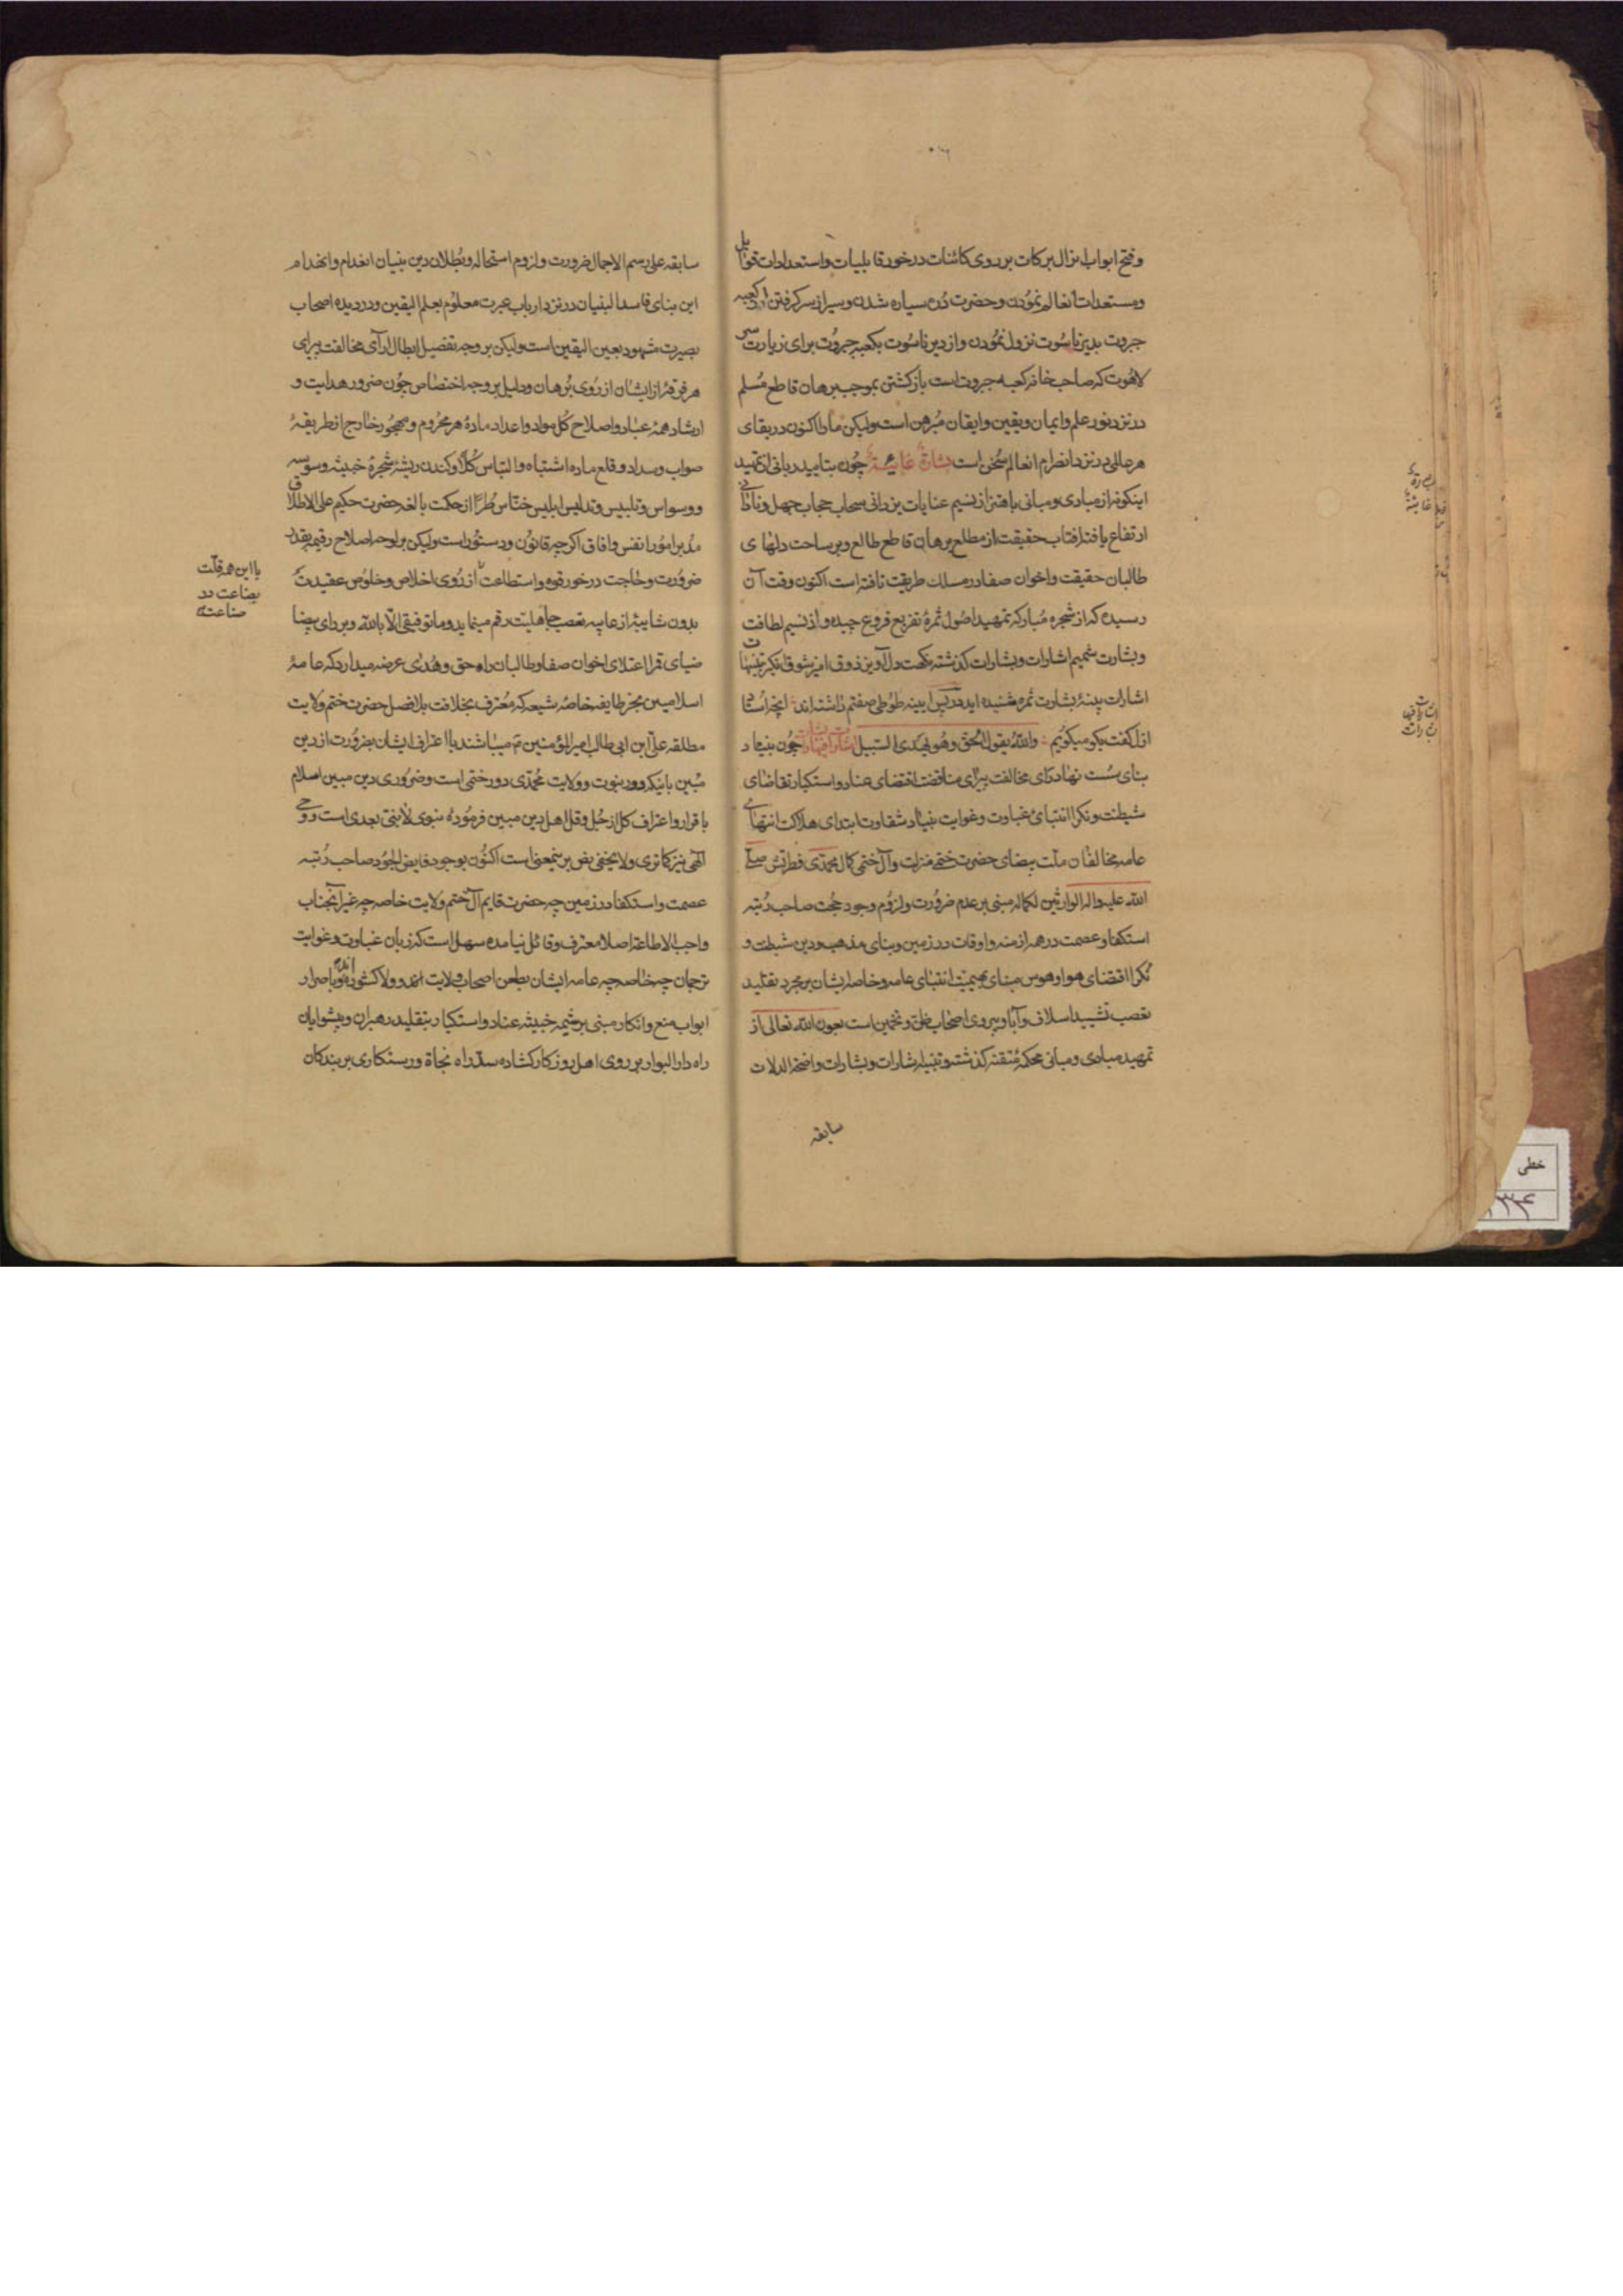 وفتح ابواب انزال برکات بر روی کائنات درخور قابلیات و استعدادات قوابل
ومستعدات انعالم نمودن وحضرت دُرّه سیاره شدن وسیر از سر کرفتن از کعبه
جبروت بدیر ناسُوت نزول نمُودن واز دیر ناسُوت بکعبه جبرُوت برای زیارت سرّ
لاهُوت که صاحب خانه کعبه جبروت است باز کشتن بموجب برهان قاطع مُسلم
در نزد نور علم وایمان ویقین وایقان مُبرهن است ولیکن ما را اکنون در بقای
هر عالمی در نزد انصرام انعالم سُخن است بشارة غایبیّة چُون بتایید ربانی از تمهید
اینکونه از مبادی ومبانی باهتزاز نسیم عنایات یزدانی سحاب حجاب جهل ونادانی
ارتفاع یافته افتاب حقیقت از مطلع برهان قاطع طالع وبر ساحت دلهای
طالبان حقیقت واخوان صفا در مسلک طریقت تافته است اکنون وقت آن
رسیده که از شجره مُبارکه تمهید اصُول ثمرهٔ تفریع فروع چیده واز نسیم لطافت
وبشارت شمیم اشارات وبشارات کذشته نکهت دل آویز ذوق امیز شوق انکیز تنبیهات
اشارات بینهٔ بشارت ثمره شنیده اید در پس آیینه طوُطی صفتم داشته اند آنچه اُستاد
ازل کفت بکو میکوُیم والله یقول الحق وهُو یَهدی السّبیل اشارات فیها بشارات چون بنیاد
بنای سُست نهاد رای مخالفت پیرای مناقضت اقتضای عناد واستکبار تقاضای
شیطنت ونکرا انتهای غباوت وغوایت بنیاد شقاوت ابتدای هلاکت انتهای
عامه مخالفان ملّت بیضای حضرت ختمی منزلت وآل ختمی کمال محمّدی فطرتش صلّی
الله علیه واله الوارثین لکماله مبنی بر عدم ضرُورت ولزوُم وجود حجت صاحب رُتبه
استکفا وعصمت در همه ازمنه واوقات در زمین وبنای مذهب ودین شیطنت و
نُکرا اقتضای هوا وهوس مبنای بهیمیّت انتهای عامه وخاصه ایشان بر مجرد تقلید
تعصب تشیید اسلاف وآبا وپیروی اصحاب ظنّ وتخمین است بعون الله تعالی از
تمهید مبادی ومبانی محکمهٔ مُتقنه کذشته وتنبیه اشارات وبشارات واضحة الدلالات
سابقه
سابقه علی رسم الاجمال ضرورت ولزوم استحاله وبُطلان دین بنیان انعدام وانهدام
این بنای فاسد البنیان در نزد ارباب عبرت معلوُم بعلم الیقین ودر دیده اصحاب
بصیرت شهود بعین الیقین است ولیکن بر وجه تفصیل ابطال ارآی مخالفت پیرای
هر فرقهٔ از ایشان از رُوی بُرهان ودلیل بر وجه اختصاص چون ضرور هدایت و
ارشاد همهٔ عباد واصلاح کُل مواد واعداد مادهٔ هر محرُوم ومهجُور خارج از طریقهٔ
صواب وسداد وقلع ماده اشتباه والتباس کُلّا وکندن ریشهٔ شجرهٔ خبیثه وسوسه
ووسواس وتلبیس وتدلیس ابلیس خنّاس طُرّاً از حکمت بالغه حضرت حکیم علی الاطلاق
مُدبر امُور انفس وافاق اکر چه قانُون ودستُور است ولیکن بر لوحه اصلاح رقیمه بقدر
ضرُورت وحاجت درخور قوه واستطاعت از رُوی اخلاص وخلوُص عقیدت
با این همه قلّت
بضاعت در
صناعته
بدون شایبهٔ از عایبه تعصب جاهلیّت رقم مینماید وما توفیقی الّا بالله وبر رای بیضا
ضیای قرا اعتلای اخوان صفا وطالبان راه حق وهُدٰی عرضه میدارد که عامهٔ
اسلامیین بجز طایفه خاصهٔ شیعه که مُعترف بخلافت بلافصل حضرت ختم ولایت
مطلقه علی ابن ابی طالب امیر المؤمنین ع میباشند با اعتراف ایشان بضرُورت از دین
مُبین بانیکه دوره نبوت وولایت مُحمّدی دوره ختمی است وضرُوری دین مبین اسلام
باقرار واعتراف کل از جُل وقل اهل دین مبین فرمُودهٔ نبوی لا نبیّ بعدی است ووحی
آلهی نیز کما تری ولا یخفی نص بر ینمعنی است اکنُون بوجود فایض الجُود صاحب رُتبه
عصمت واستکفا در زمین چه حضرت قایم آل ختم ولایت خاصه چه غیر آنجناب
واجب الاطاعه اصلا معترف وقائل نیامده سهل است که زبان غباوت وغوایت
ترجمان چه خاصه چه عامه ایشان بطعن اصحاب ولایت ائمه وولا کشوده اند وباصرار
ابواب منع وانکار مبنی بر شیمه خبیثه عناد واستکبار بتقلید رهبران وپیشوایان
راه دار البوار بر روی اهل روزکار کشاده سدّ راه نجاة ورستکاری بر بندکان
خطی